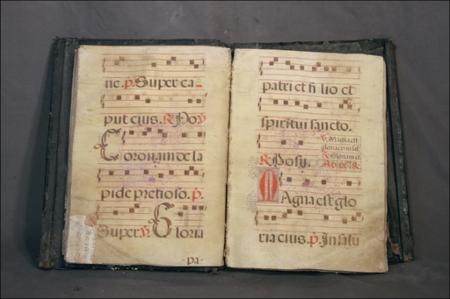 ne. p. Super ca
put eius. R. Pos
Coronam de la
pide pretioso. p.
Super. V. Gloria
-pa-
patri et filio et
spiritui sancto.
R. Posu.
Magna est glo
ria eius. p. In salu